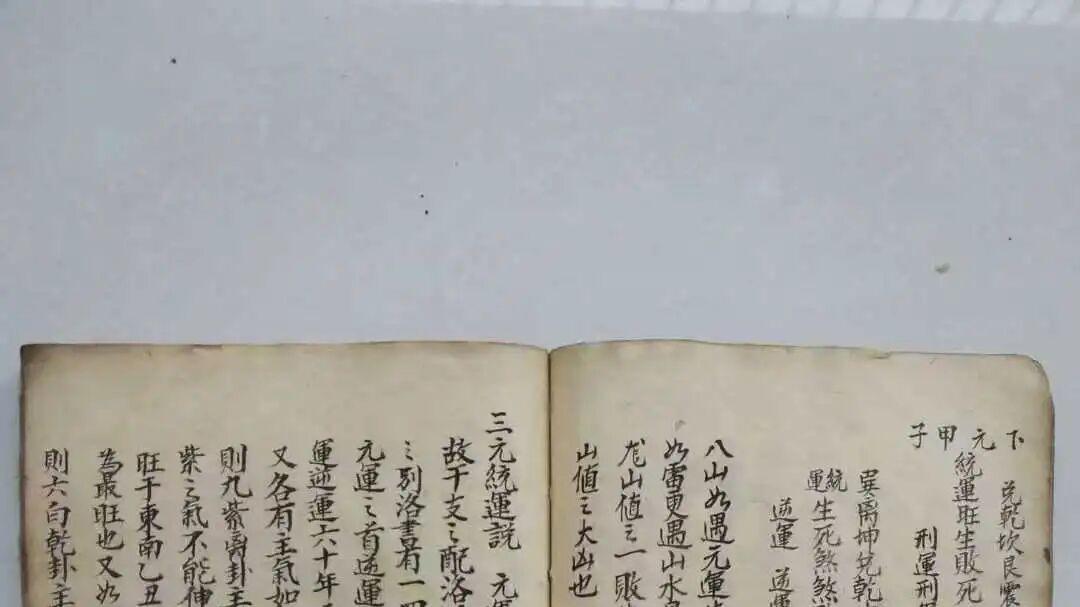 兑乾坎艮震
下元甲子
統運旺生敗死
刑運刑
巽离坤兑乾
統運
生死煞煞
逆運 逆運
八山如遇元運
如雷更遇山水
山值之一敗
山值之大凶也
三元統運説 元
故干支之配洛
之别洛書有一四
元運之首逆運
運逆運六十年
又各有主氣如
則九紫离卦主
紫之氣不能伸
旺于東南乙丑
為最旺也又如
則六白乾卦主